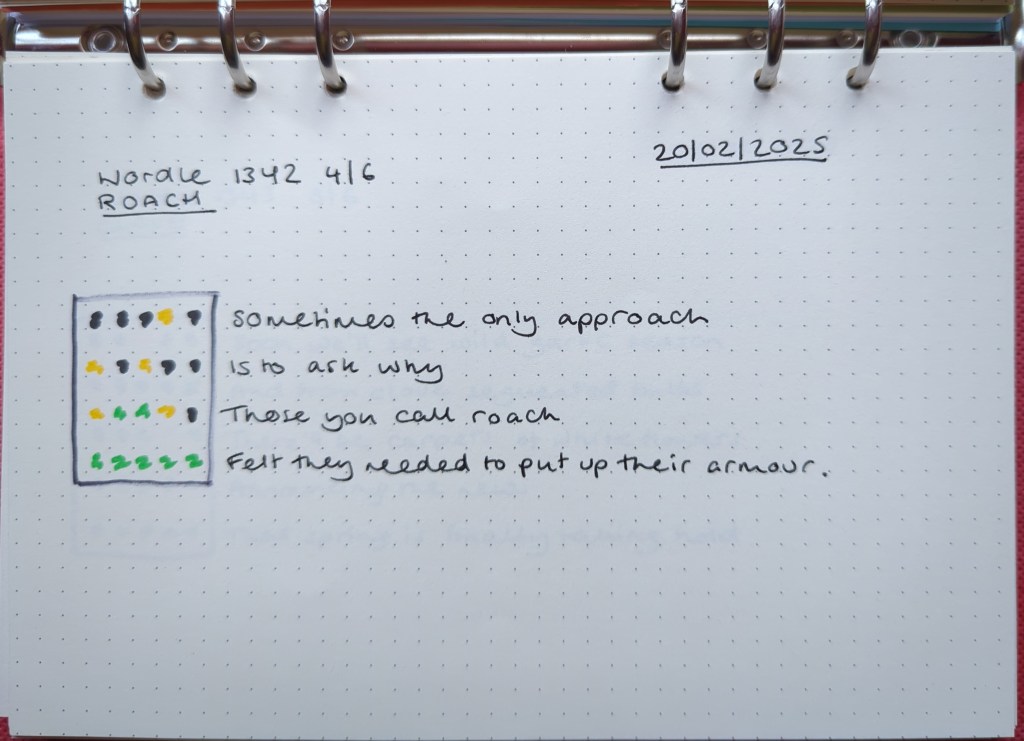 20/02/2025
Wordle 1342 4/6
ROACH
Sometimes the only approach
Is to ask why
Those you call roach
Felt they needed to put up their armour.